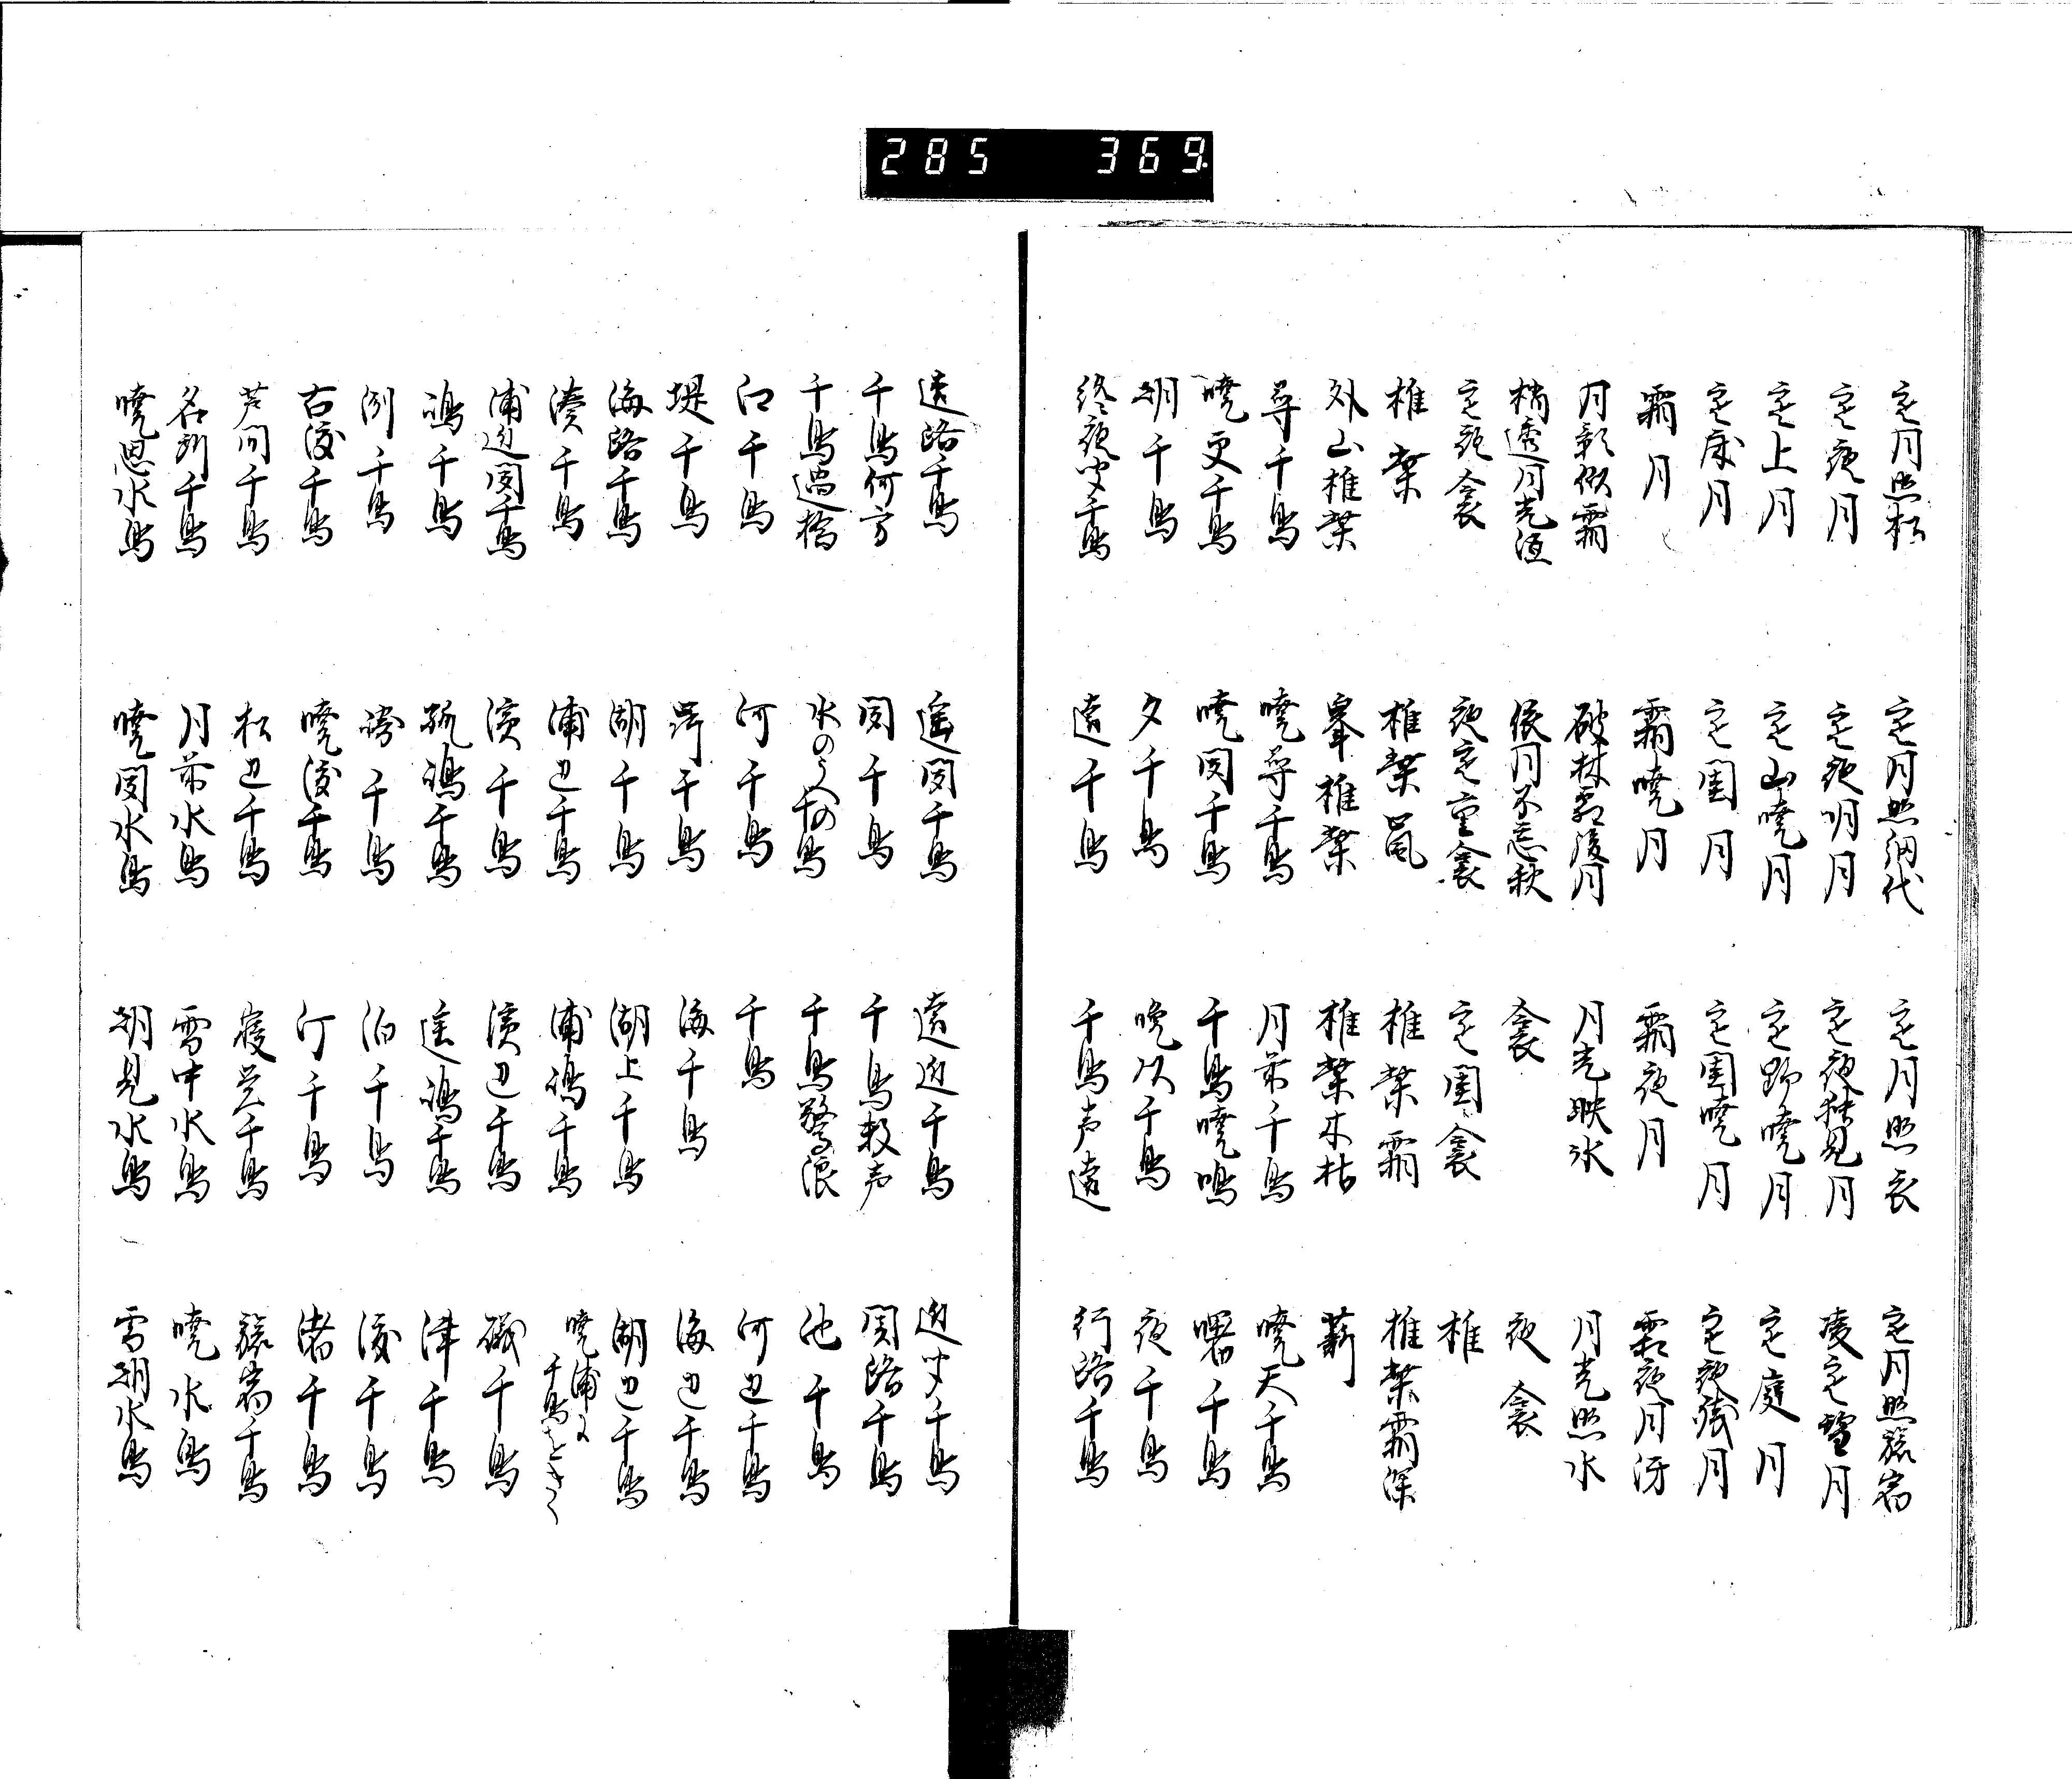 285 369
寒月照松 寒月照網代 寒月照衣 寒月照旅宿
寒夜月 寒夜明月 寒夜独見月 凌寒望月
寒上月 寒山暁月 寒野暁月 寒庭月
寒床月 寒閨月 寒閨暁月 寒夜残月
霜月 霜暁月 霜夜月 霜夜月冴
月影似霜 破林霜後月 月光映氷 月光照水
梢透月光 依月不忘秋 衾 夜衾
寒夜衾 夜寒重衾 寒閨衾 椎
椎柴 椎柴嵐 椎柴霜 椎柴霜深
外山椎柴 峯椎柴 椎柴末枯 薪
尋千鳥 暁尋千鳥 月前千鳥 暁天千鳥
暁更千鳥 暁聞千鳥 千鳥暁鳴 曙千鳥
朝千鳥 夕千鳥 千鳥 夜千鳥
終夜聞千鳥 遠千鳥 千鳥声遠 行路千鳥
遠路千鳥 遥聞千鳥 遠近千鳥 近聞千鳥
千鳥何方 関千鳥 千鳥数声 関路千鳥
千鳥過橋 水のうへの千鳥 千鳥驚浪 池千鳥
江千鳥 河千鳥 千鳥 河辺千鳥
堤千鳥 岸千鳥 海千鳥 海辺千鳥
海路千鳥 湖千鳥 湖上千鳥 湖辺千鳥
湊千鳥 浦辺千鳥 浦嶋千鳥 暁浦に千鳥をきく
浦近聞千鳥 浜千鳥 浜辺千鳥 磯千鳥
嶋千鳥 孤嶋千鳥 遠嶋千鳥 津千鳥
洲千鳥 潟千鳥 泊千鳥 渡千鳥
古渡千鳥 暁渡千鳥 汀千鳥 渚千鳥
芦間千鳥 松辺千鳥 寝覚千鳥 旅宿千鳥
名所千鳥 月前水鳥 雪中水鳥 暁水鳥
暁思水鳥 暁聞水鳥 朝見水鳥 雪朝水鳥